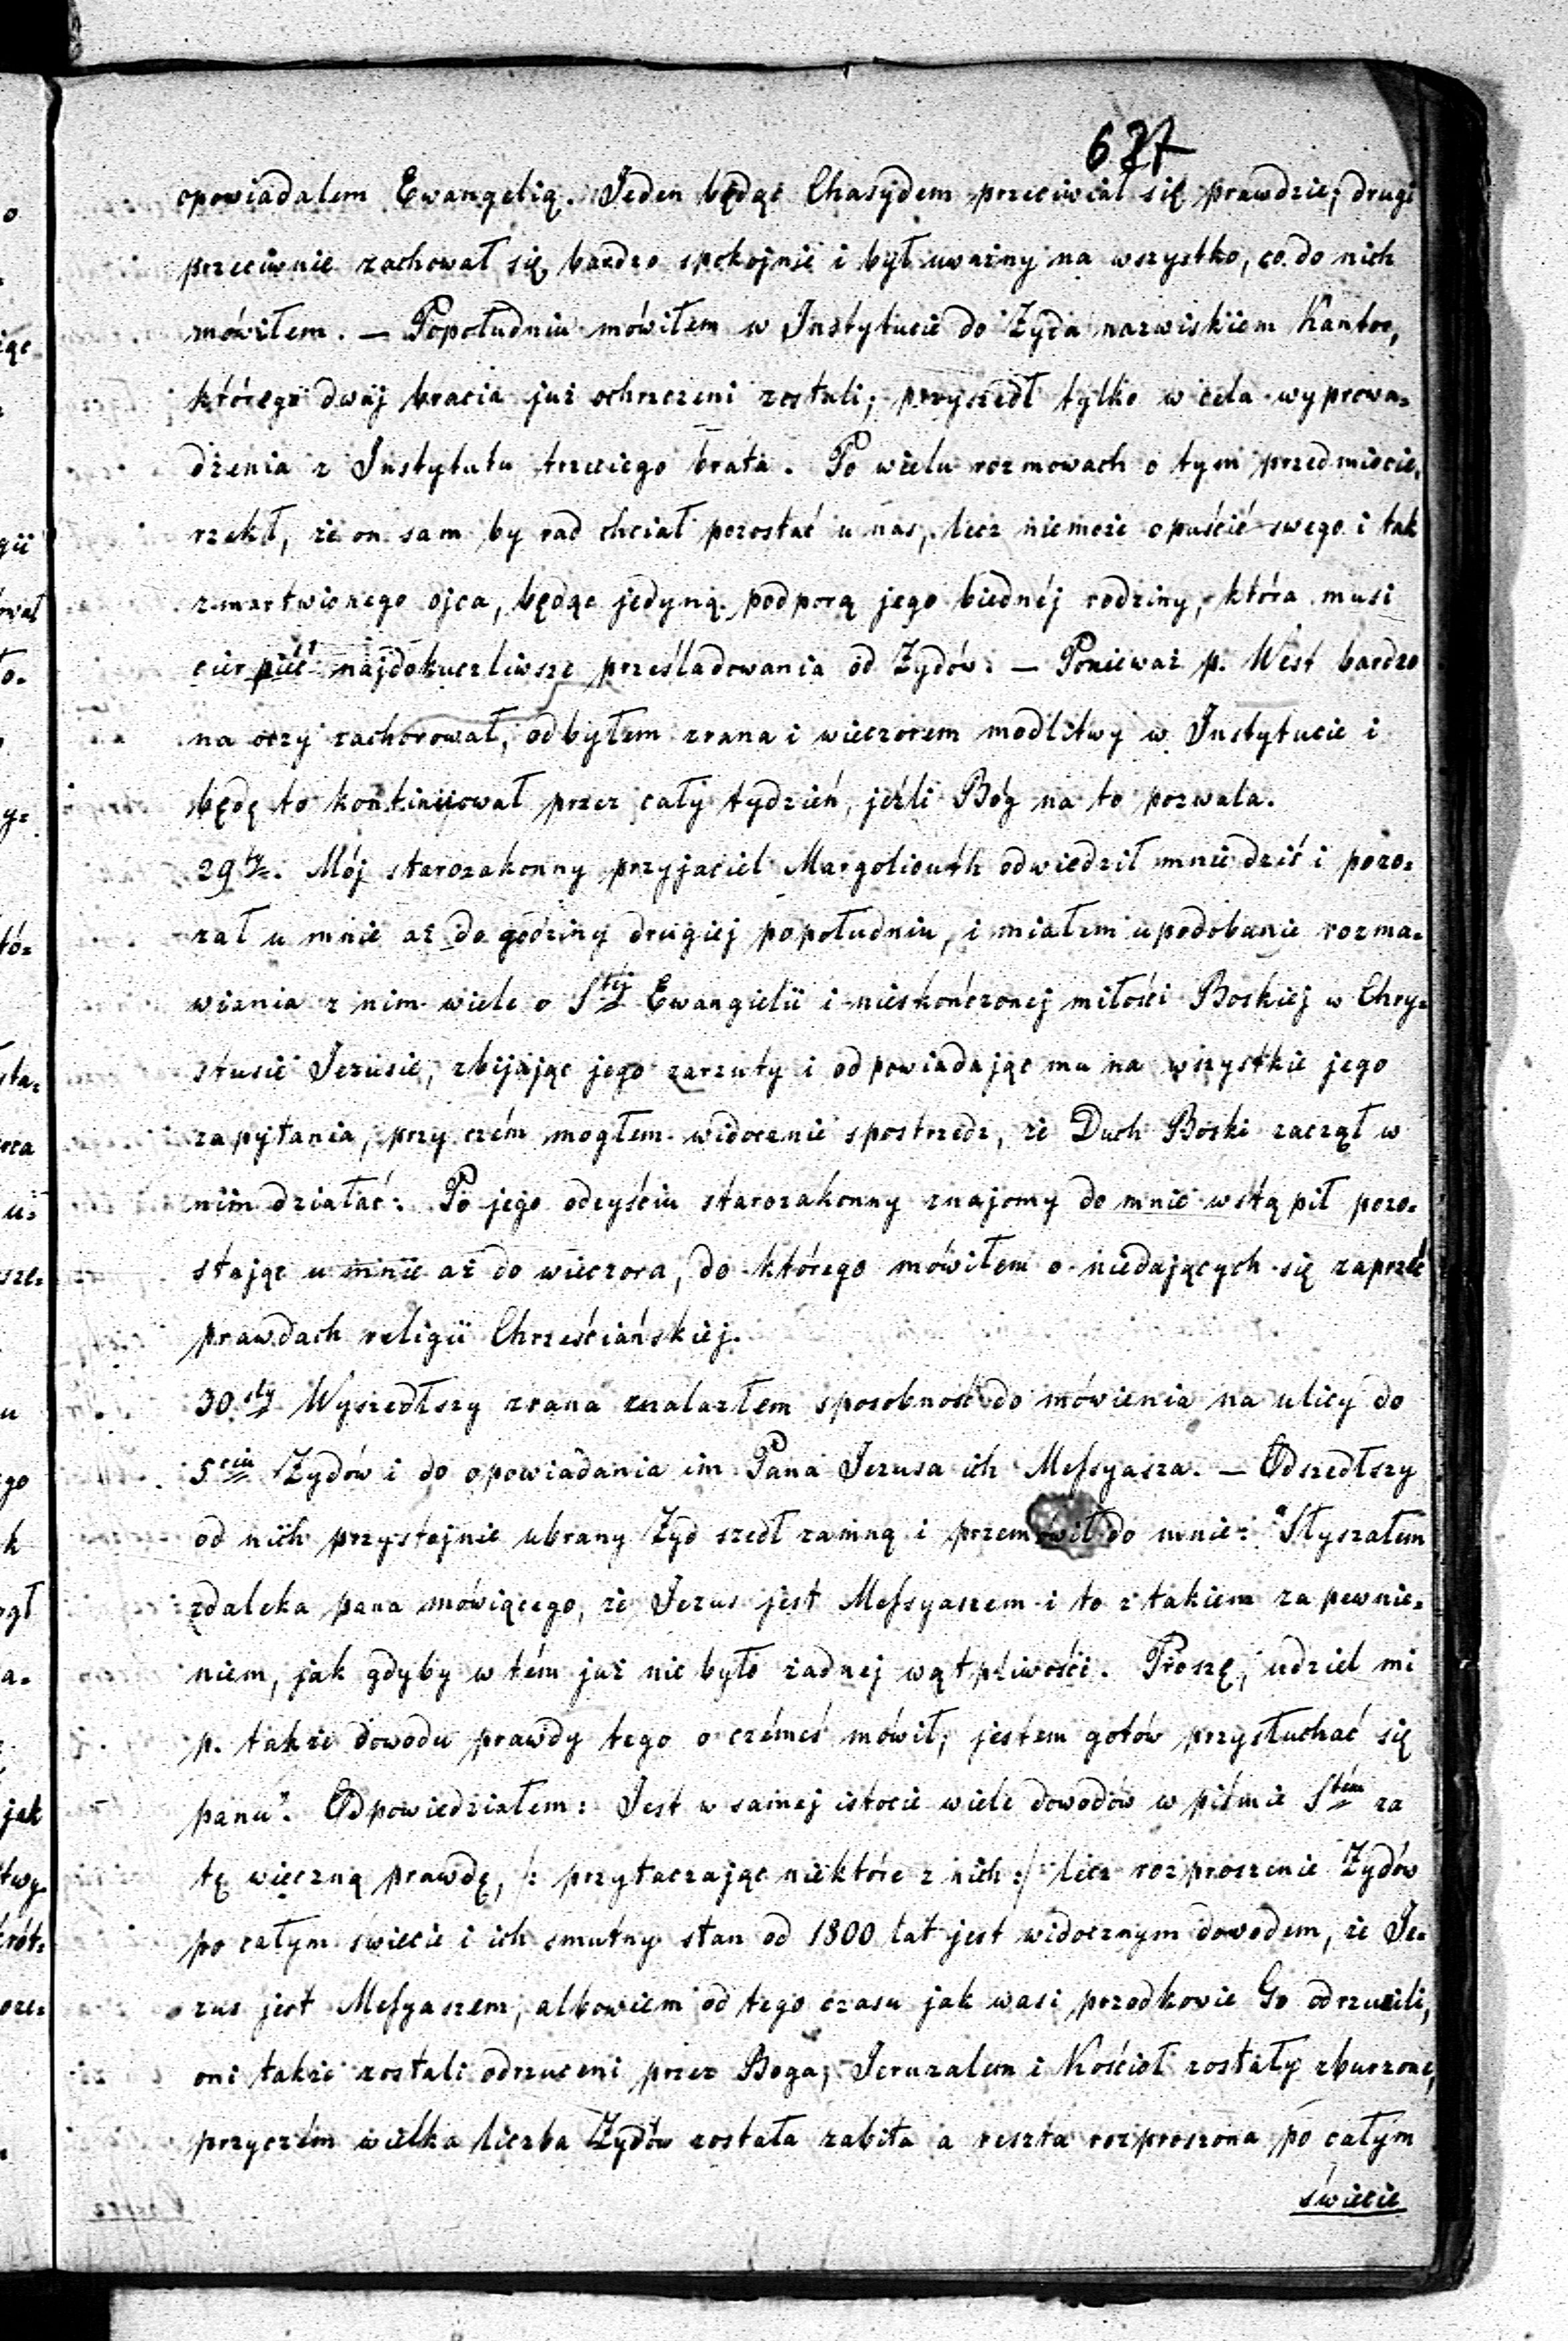 637
opowiadalem Ewangelią. Jeden będąc Chasydem przeciwiał się prawdzie; drugi
przeciwnie zachował się bardzo spokojnie i był uważny na wszystko, co do nich
mówiłem. — Popołudniu mówiłem w Instytucie do Żyda nazwiskiem Kantor,
którego dwaj bracia już ochrzczeni zostali; przyszedł tylko w celu wyprowa=
dzenia z Instytutu trzeciego brata. Po wielu rozmowach o tym przedmiocie,
rzekł, że on sam by rad chciał pozostać u nas, lecz niemoże opuścić swego i tak
zmartwionego ojca, będąc jedyną podporą jego biednéj rodziny, która musi
cierpieć najdokuczliwsze prześladowania od Żydów. — Ponieważ p. West bardzo
na oczy zachorował, odbyłem zrana i wieczorem modlitwy w Instytucie i
będę to kontinuował przez cały tydzień, jeźli Bóg na to pozwala.
29ty. Mój starozakonny przyjaciel Margoliouth odwiedził mnie dziś i pozo=
zał u mnie aż do godziny drugiej popołudniu, i miałem upodobanie rozma=
wiania z nim wiele o Stéj Ewangielii i nieskończonej miłości Boskiej w Chry=
stusie Jezusie, zbijając jego zarzuty i odpowiadając mu na wszystkie jego
zapytania, przy czém mogłem widocznie spostrzedz, że Duch Boski zaczął w
nim działać. Po jego odeyściu starozakonny znajomy do mnie wstąpił pozo=
stając u mnie aż do wieczora, do którego mówiłem o niedających się zaprzeć
prawdach religii Chrześciańskiej.
30.sty Wyszedłszy zrana znalazłem sposobność do mówienia na ulicy do
5ciu Żydów i do opowiadania im Pana Jezusa ich Messyasza. — Odszedłszy
od nich przystojnie ubrany Żyd szedł zamną i przemówił do mnie: "Słyszałem
zdaleka pana mówiącego, że Jezus jest Messyaszem i to z takiem zapewnie=
niem, jak gdyby w tém już nie było żadnej wątpliwości. Proszę, udziel mi
p. także dowodu prawdy tego o czémeś mówił; jestem gotów przysłuchać się
panu". Odpowiedziałem: Jest w samej istocie wiele dowodów w piśmie Stém za
tę wieczną prawdę, /: przytaczając niektóre z nich :/ lecz rozproszenie Żydów
po całym świecie i ich smutny stan od 1800 lat jest widocznym dowodem, że Je=
zus jest Messyaszem, albowiem od tego czasu jak wasi przodkowie Go odrzucili,
oni także zostali odrzuceni przez Boga; Jeruzalem i Kościoł zostały zburzone,
przyczém wielka liczba Żydów została zabita a reszta rozproszona po całym
świecie